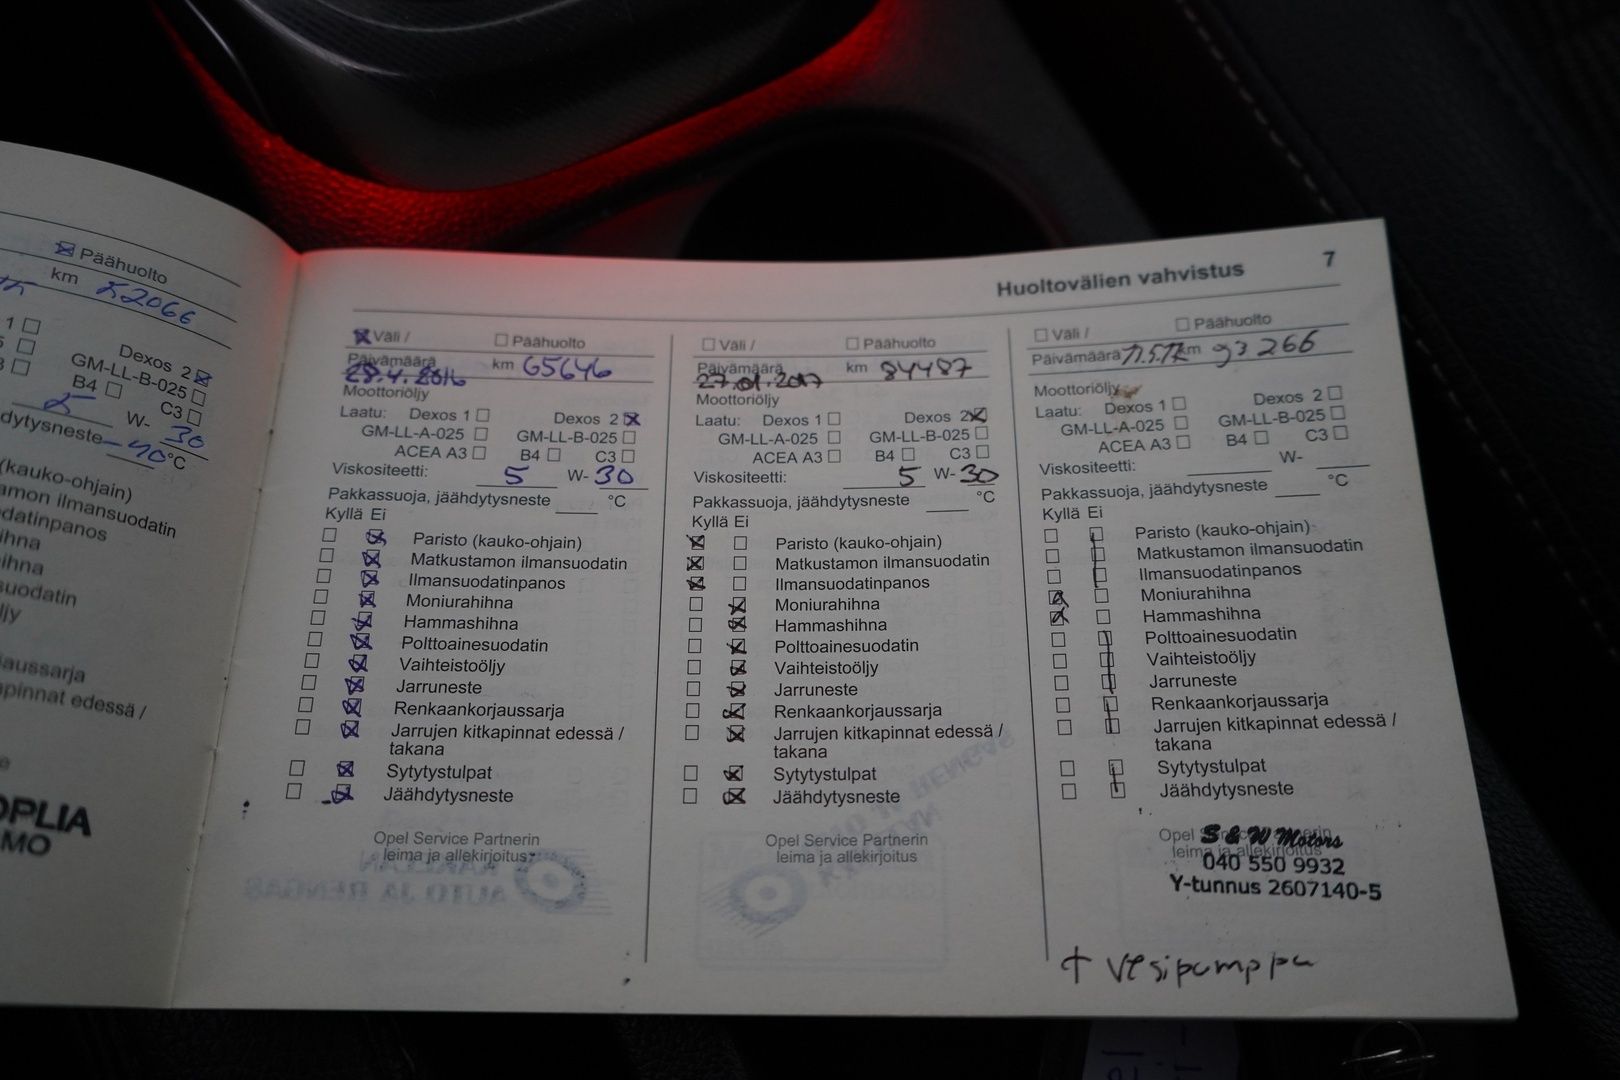 Päähuolto
km 52066
1
Dexos 2
GM-LL-B-025
B4
C3
5 W- 30
dytysneste -40 °C
(kauko-ohjain)
amon ilmansuodatin
datinpanos
ihna
ihna
suodatin
ljy
jaussarja
apinnat edessä /
OPLIA
MO
Huoltovälien vahvistus 7
Väli / Päähuolto
Päivämäärä 28.4.2016 km 65646
Moottoriöljy
Laatu: Dexos 1 Dexos 2
GM-LL-A-025 GM-LL-B-025
ACEA A3 B4 C3
Viskositeetti: 5 W- 30
Pakkassuoja, jäähdytysneste °C
Kyllä Ei
Paristo (kauko-ohjain)
Matkustamon ilmansuodatin
Ilmansuodatinpanos
Moniurahihna
Hammashihna
Polttoainesuodatin
Vaihteistoöljy
Jarruneste
Renkaankorjaussarja
Jarrujen kitkapinnat edessä /
takana
Sytytystulpat
Jäähdytysneste
Opel Service Partnerin
leima ja allekirjoitus
Väli / Päähuolto
Päivämäärä 27.01.2017 km 84487
Moottoriöljy
Laatu: Dexos 1 Dexos 2
GM-LL-A-025 GM-LL-B-025
ACEA A3 B4 C3
Viskositeetti: 5 W- 30
Pakkassuoja, jäähdytysneste °C
Kyllä Ei
Paristo (kauko-ohjain)
Matkustamon ilmansuodatin
Ilmansuodatinpanos
Moniurahihna
Hammashihna
Polttoainesuodatin
Vaihteistoöljy
Jarruneste
Renkaankorjaussarja
Jarrujen kitkapinnat edessä /
takana
Sytytystulpat
Jäähdytysneste
Opel Service Partnerin
leima ja allekirjoitus
Väli / Päähuolto
Päivämäärä 11.5.17 km 93 266
Moottoriöljy
Laatu: Dexos 1 Dexos 2
GM-LL-A-025 GM-LL-B-025
ACEA A3 B4 C3
Viskositeetti: W-
Pakkassuoja, jäähdytysneste °C
Kyllä Ei
Paristo (kauko-ohjain)
Matkustamon ilmansuodatin
Ilmansuodatinpanos
Moniurahihna
Hammashihna
Polttoainesuodatin
Vaihteistoöljy
Jarruneste
Renkaankorjaussarja
Jarrujen kitkapinnat edessä /
takana
Sytytystulpat
Jäähdytysneste
Opel Service Partnerin
leima ja allekirjoitus
S & W Motors
040 550 9932
Y-tunnus 2607140-5
+ vesipumppu